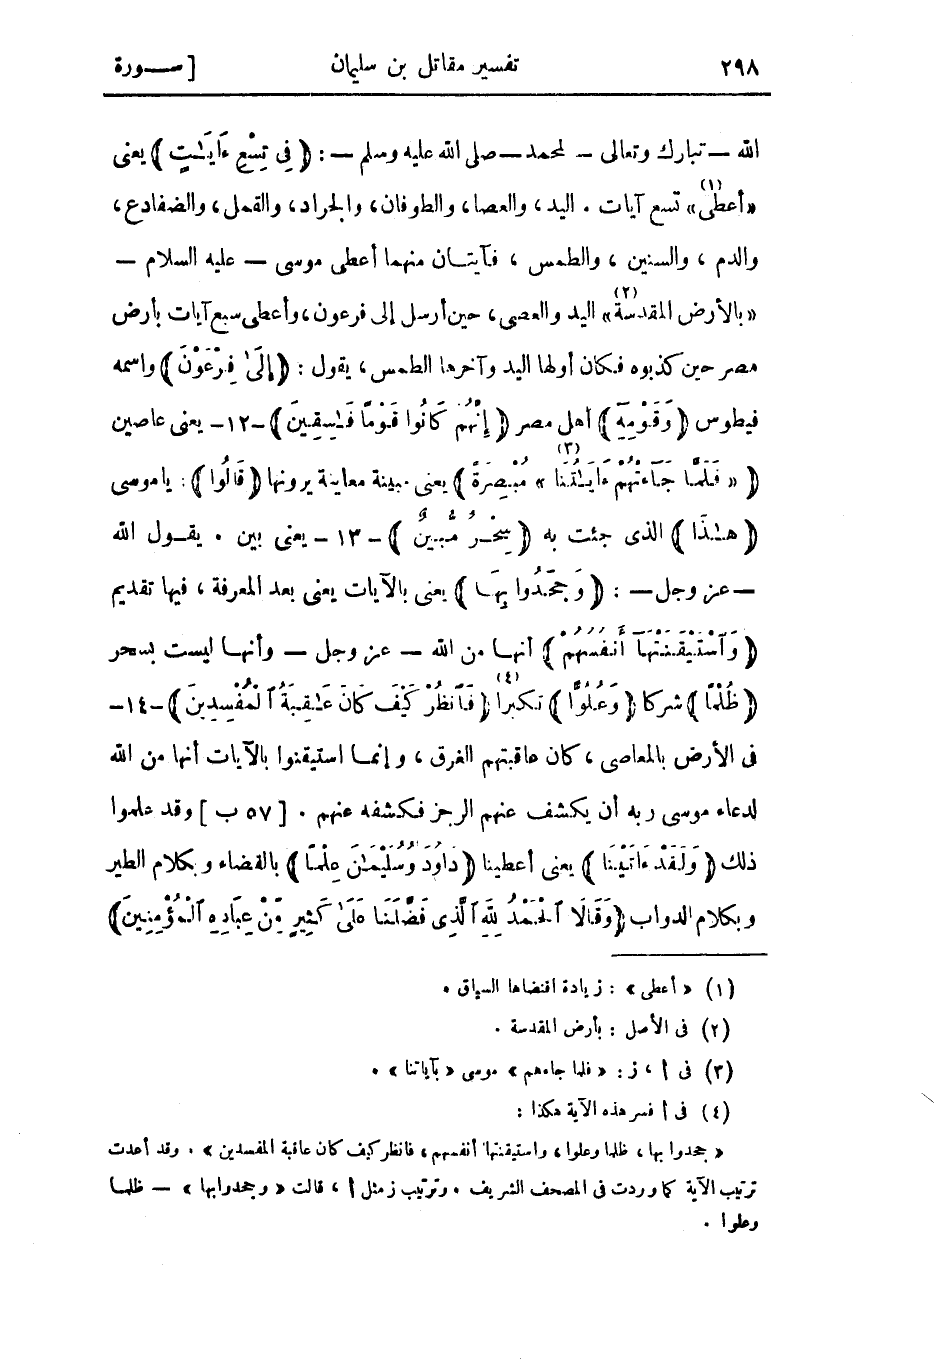 ٢٩٨ تفسير مقاتل بن سليمان [ســورة
الله — تبارك وتعالى — لمحمد — صلى الله عليه وسلم — : ﴿ فِى تِسْعِ ءَايَـٰتٍ ﴾ يعنى
«أعطى»(١) تسع آيات . اليد ، والعصا ، والطوفان ، والجراد ، والقمل ، والضفادع ،
والدم ، والسنين ، والطمس ، فآيتـان منهما أعطى موسى — عليه السلام —
«بالأرض المقدسة»(٢) اليد والعصى ، حين أرسل إلى فرعون ، وأعطى سبع آيات بأرض
مصر حين كذبوه فكان أولها اليد وآخرها الطمس ، يقول : ﴿ إِلَىٰ فِرْعَوْنَ ﴾ واسمه
فيطوس ﴿ وَقَوْمِهِۦٓ ﴾ أهل مصر ﴿ إِنَّهُمْ كَانُوا قَوْمًا فَـٰسِقِينَ ﴾ -١٢- يعنى عاصين
﴿ « فَلَمَّا جَآءَتْهُمْ ءَايَـٰتُنَا »(٣) مُبْصِرَةً ﴾ يعنى مبينة معاينة يرونها ﴿ قَالُوا ﴾ : ياموسى
﴿ هَـٰذَا ﴾ الذى جئت به ﴿ سِحْرٌ مُّبِينٌ ﴾ -١٣- يعنى بين . يقـول الله
— عز وجل — : ﴿ وَجَحَدُوا بِهَـا ﴾ يعنى بالآيات يعنى بعد المعرفة ، فيها تقديم
﴿ وَٱسْتَيْقَنَتْهَآ أَنفُسُهُمْ ﴾ أنهـا من الله — عز وجل — وأنهـا ليست بسحر
﴿ ظُلْمًا ﴾ شركا ﴿ وَعُلُوًّا ﴾ تكبرا(٤) ﴿ فَٱنظُرْ كَيْفَ كَانَ عَـٰقِبَةُ ٱلْمُفْسِدِينَ ﴾ -١٤-
فى الأرض بالمعاصى ، كان عاقبتهم الغرق ، وإنمـا استيقنوا بالآيات أنها من الله
لدعاء موسى ربه أن يكشف عنهم الرجز فكشفه عنهم . [ ٥٧ ب ] وقد علموا
ذلك ﴿ وَلَقَدْ ءَاتَيْنَا ﴾ يعنى أعطينا ﴿ دَاوُدَ وَسُلَيْمَـٰنَ عِلْمًا ﴾ بالقضاء وبكلام الطير
وبكلام الدواب ﴿ وَقَالَا ٱلْحَمْدُ لِلَّهِ ٱلَّذِى فَضَّلَنَا عَلَىٰ كَثِيرٍ مِّنْ عِبَادِهِ ٱلْمُؤْمِنِينَ ﴾
(١) « أعطى » : زيادة اقتضاها السياق .
(٢) فى الأصل : بأرض المقدسة .
(٣) فى أ ، ز : « فلما جاءهم » موسى « بآياتنا » .
(٤) فى أ فسر هذه الآية هكذا :
« جحدوا بها ، ظلما وعلوا ، واستيقنتها أنفسهم ، فانظر كيف كان عاقبة المفسدين » . وقد أعدت
ترتيب الآية كما وردت فى المصحف الشريف . وترتيب ز مثل أ ، قالت « وجحدوا بها » — ظلمـا
وعلوا .